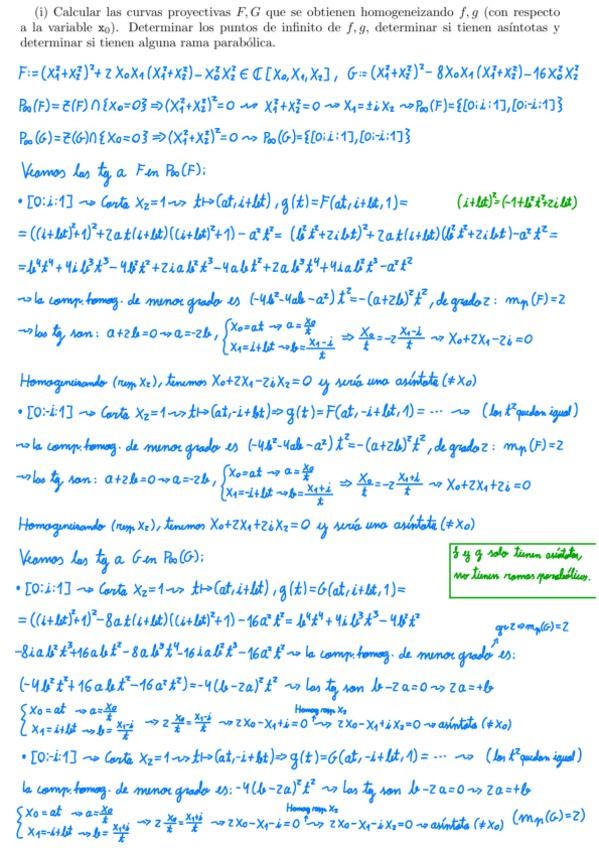 (i) Calcular las curvas proyectivas F, G que se obtienen homogeneizando f, g (con respecto
a la variable x₀). Determinar los puntos de infinito de f, g, determinar si tienen asíntotas y
determinar si tienen alguna rama parabólica.
F:=(X₁²+X₂²)²+2X₀X₁(X₁²+X₂²)-X₀²X₂² ∈ ℂ[X₀,X₁,X₂], G:=(X₁²+X₂²)²-8X₀X₁(X₁²+X₂²)-16X₀²X₂²
P∞(F)=Z(F)∩{X₀=0} ⇒ (X₁²+X₂²)²=0 ⇝ X₁²+X₂²=0 ⇝ X₁=±iX₂ ⇝ P∞(F)={[0:i:1],[0:-i:1]}
P∞(G)=Z(G)∩{X₀=0} ⇒ (X₁²+X₂²)²=0 ⇝ P∞(G)={[0:i:1],[0:-i:1]}
Veamos las tg a F en P∞(F):
• [0:i:1] ⇝ Carta X₂=1 ⇝ t↦(at,i+bt), g(t)=F(at,i+bt,1)= (i+bt)²=(-1+b²t²+2ibt)
=((i+bt)²+1)²+2at(i+bt)((i+bt)²+1)-a²t²= (b²t²+2ibt)²+2at(i+bt)(b²t²+2ibt)-a²t²=
=b⁴t⁴+4ib³t³-4b²t²+2iab²t³-4abt²+2ab³t⁴+4iab²t³-a²t²
⇝ la comp. homog. de menor grado es (-4b²-4ab-a²)t²=-(a+2b)²t², de grado 2: mp(F)=2
⇝ las tg son: a+2b=0 ⇝ a=-2b, {X₀=at ⇝ a=X₀/t, X₁=i+bt ⇝ b=(X₁-i)/t ⇒ X₀/t=-2(X₁-i)/t ⇝ X₀+2X₁-2i=0
Homogeneizando (resp X₂), tenemos X₀+2X₁-2iX₂=0 y sería una asíntota (≠X₀)
• [0:-i:1] ⇝ Carta X₂=1 ⇝ t↦(at,-i+bt) ⇒ g(t)=F(at,-i+bt,1)= ··· ⇝ (los t² quedan igual)
⇝ la comp. homog. de menor grado es (-4b²-4ab-a²)t²=-(a+2b)²t², de grado 2: mp(F)=2
⇝ las tg son: a+2b=0 ⇝ a=-2b, {X₀=at ⇝ a=X₀/t, X₁=-i+bt ⇝ b=(X₁+i)/t ⇒ X₀/t=-2(X₁+i)/t ⇝ X₀+2X₁+2i=0
Homogeneizando (resp X₂), tenemos X₀+2X₁+2iX₂=0 y sería una asíntota (≠X₀)
Veamos las tg a G en P∞(G):
f y g solo tienen asíntotas,
no tienen ramas parabólicas.
• [0:i:1] ⇝ Carta X₂=1 ⇝ t↦(at,i+bt), g(t)=G(at,i+bt,1)=
=((i+bt)²+1)²-8at(i+bt)((i+bt)²+1)-16a²t²= b⁴t⁴+4ib³t³-4b²t²
gr 2 ⇒ mp(G)=2
-8iab²t³+16abt²-8ab³t⁴-16iab²t³-16a²t² ⇝ la comp. homog. de menor grado es:
(-4b²t²+16abt²-16a²t²)=-4(b-2a)²t² ⇝ Las tg son b-2a=0 ⇝ 2a=+b
{X₀=at ⇝ a=X₀/t, X₁=i+bt ⇝ b=(X₁-i)/t ⇝ 2X₀/t=(X₁-i)/t ⇝ 2X₀-X₁+i=0 Homog resp. X₂ ⇝ 2X₀-X₁+iX₂=0 ⇝ asíntota (≠X₀)
• [0:-i:1] ⇝ Carta X₂=1 ⇝ t↦(at,-i+bt) ⇒ g(t)=G(at,-i+bt,1)= ··· ⇝ (los t² quedan igual)
la comp. homog. de menor grado es: -4(b-2a)²t² ⇝ Las tg son b-2a=0 ⇝ 2a=+b
{X₀=at ⇝ a=X₀/t, X₁=-i+bt ⇝ b=(X₁+i)/t ⇝ 2X₀/t=(X₁+i)/t ⇝ 2X₀-X₁-i=0 Homog resp. X₂ ⇝ 2X₀-X₁-iX₂=0 ⇝ asíntota (≠X₀) (mp(G)=2)